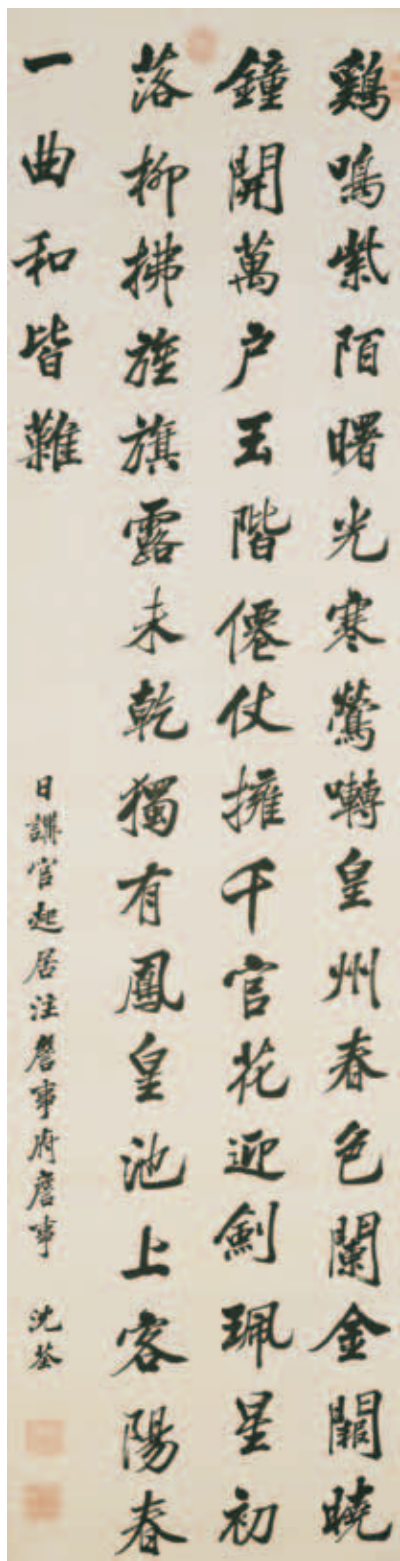 鷄鳴紫陌曙光寒鶯囀皇州春色闌金闕曉
鐘開萬户玉階僊仗擁千官花迎劍珮星初
落柳拂旌旗露未乾獨有鳳皇池上客陽春
一曲和皆難
日講官起居注詹事府詹事 沈荃